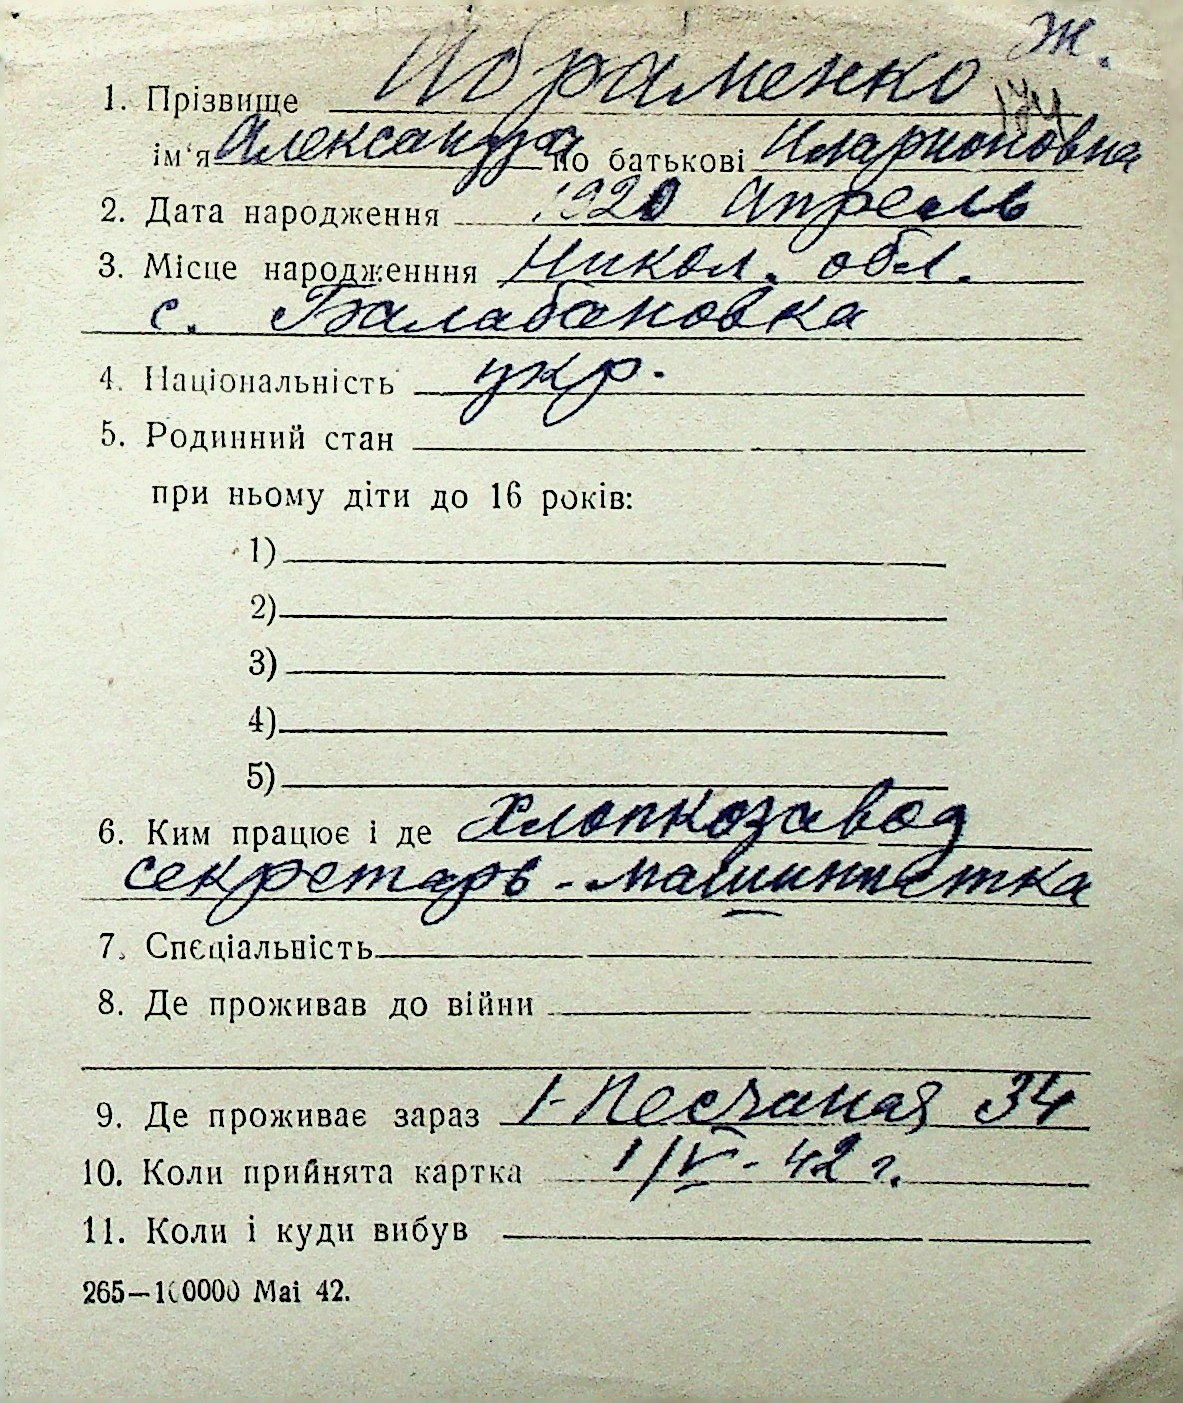 ж.
1. Прізвище Абраменко
174
ім'я Александра по батькові Иларионовна
2. Дата народження 1920 Апрель
3. Місце народженння Никол. обл.
с. Балабановка
4. Національність укр.
5. Родинний стан
при ньому діти до 16 років:
1)
2)
3)
4)
5)
6. Ким працює і де Хлопкозавод
секретарь-машинистка
7. Спєціальність
8. Де проживав до війни
9. Де проживає зараз 1-Песчаная 34
10. Коли прийнята картка 1/V-42 г.
11. Коли і куди вибув
265—100000 Mai 42.